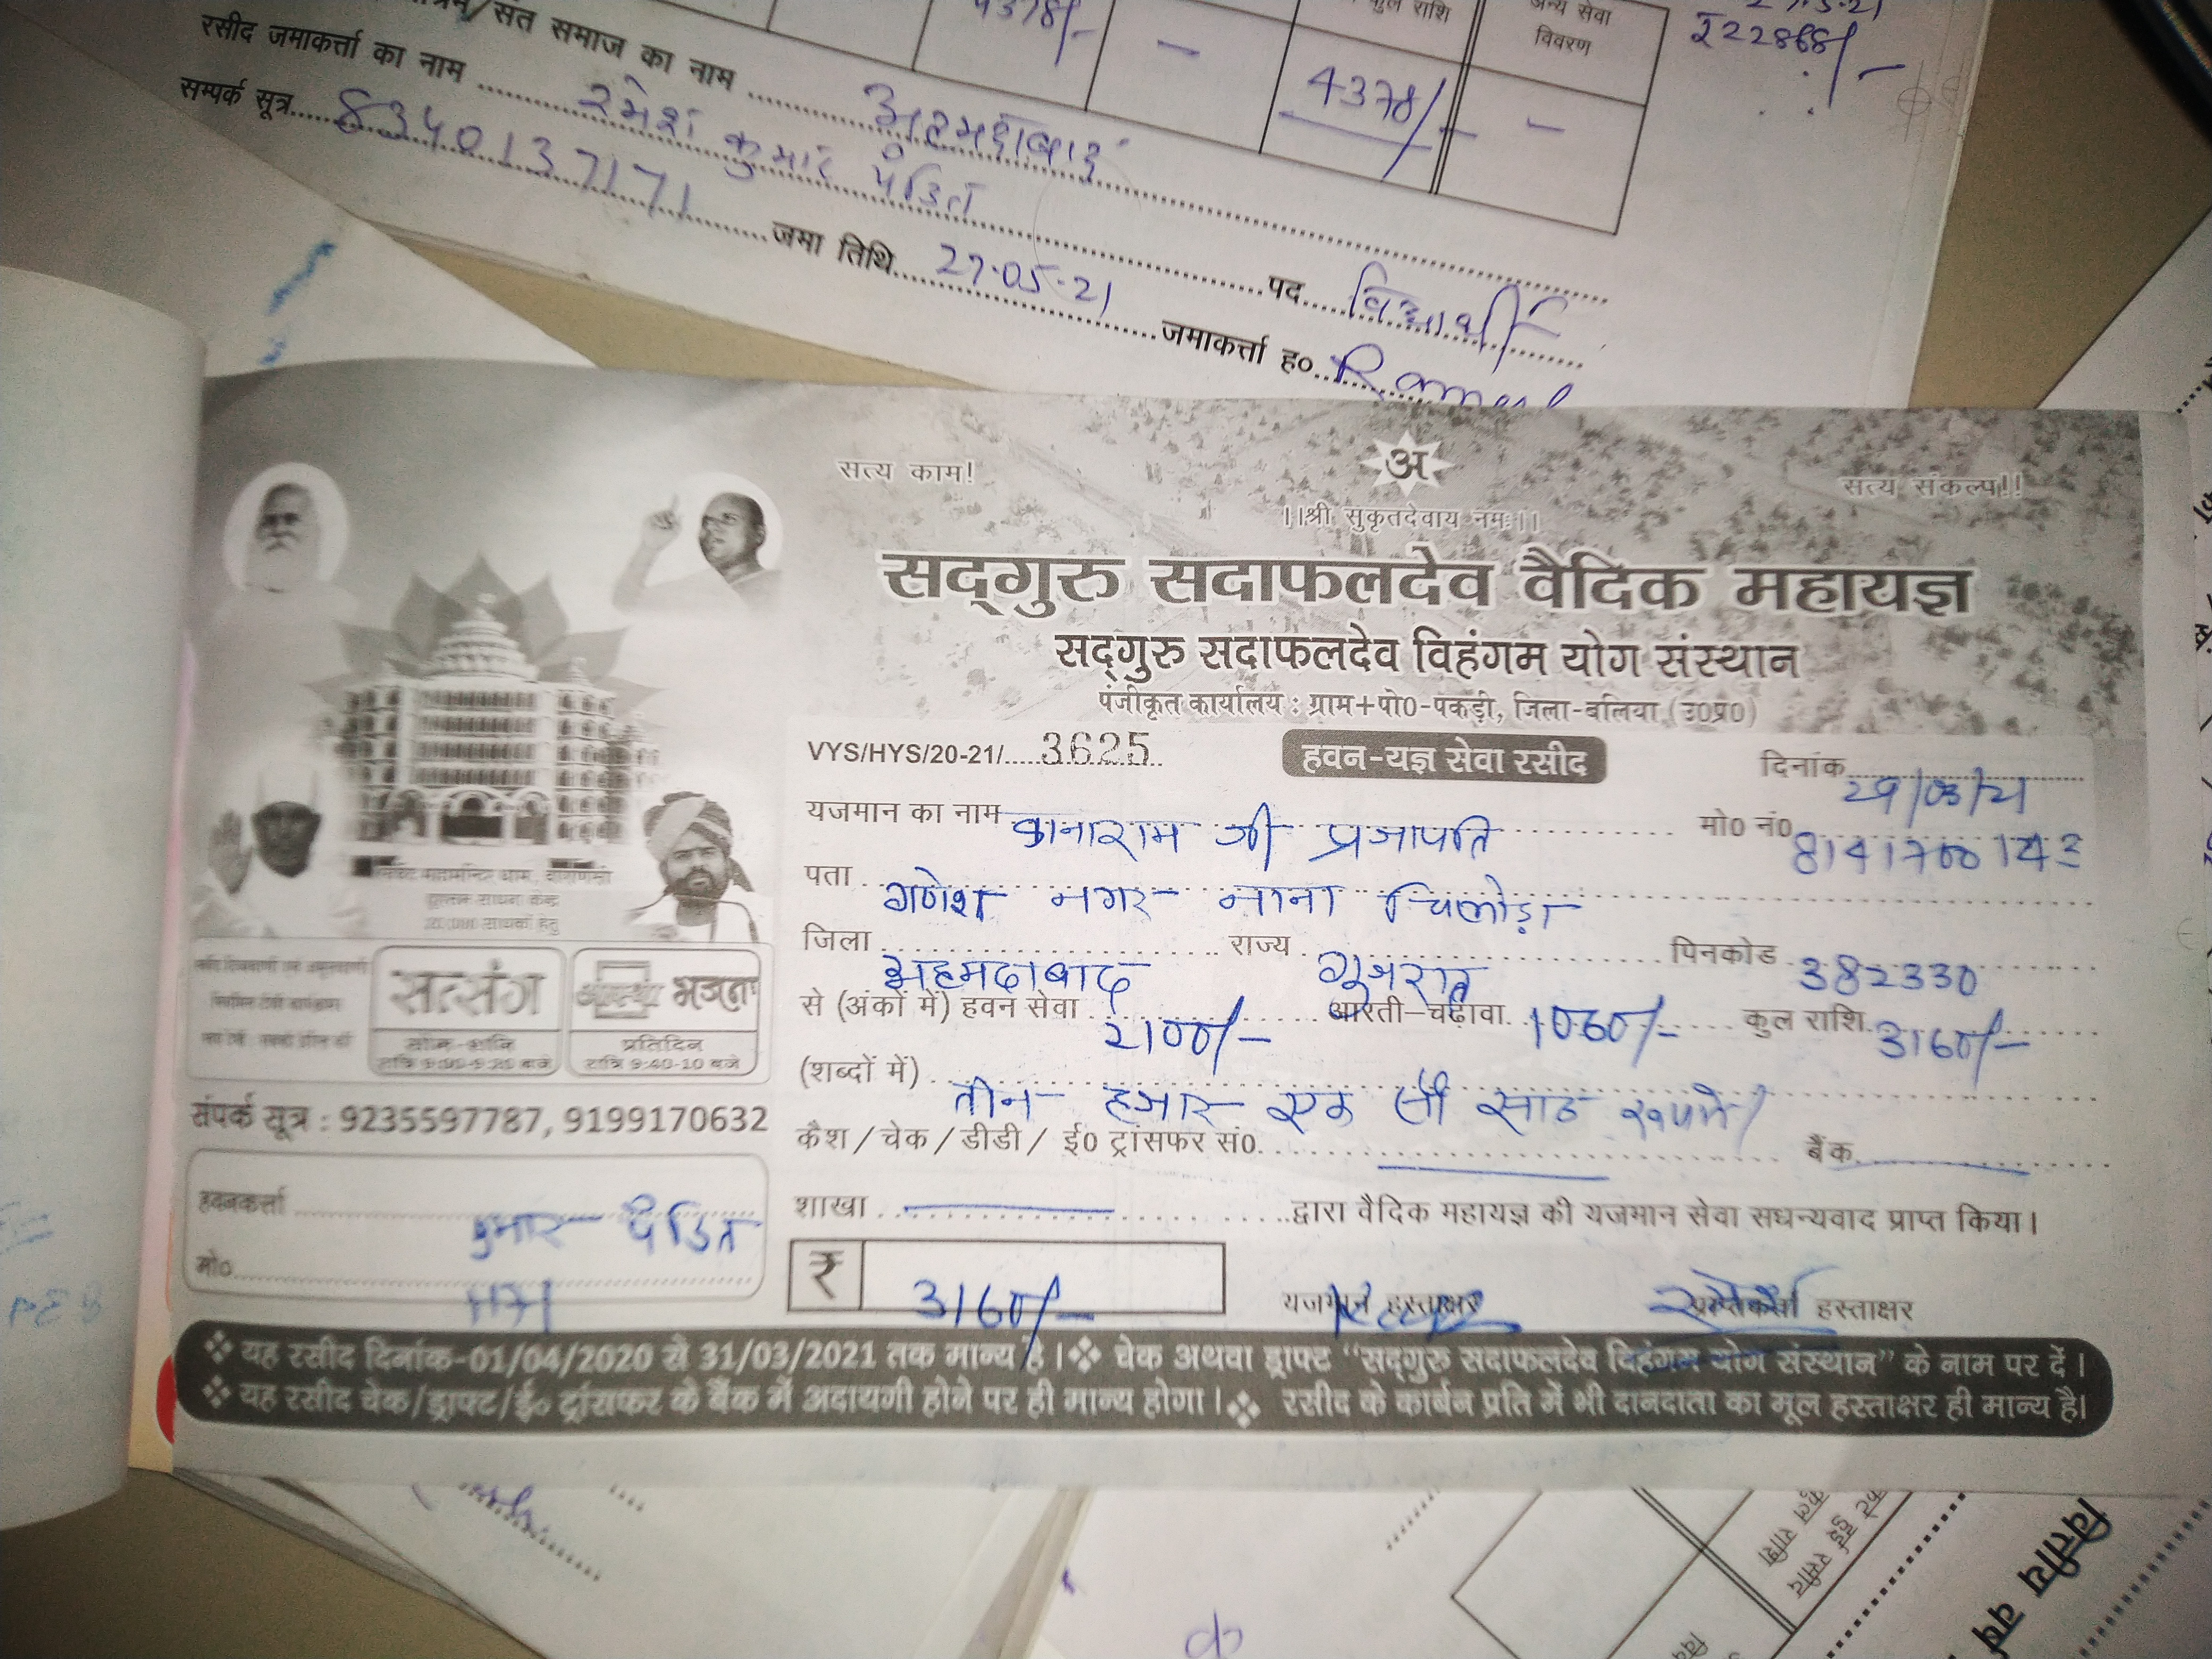 4378/- -
कुल राशि
अन्य सेवा
विवरण
4378/- -
₹22868/-
संत समाज का नाम अहमदाबाद
रसीद जमाकर्त्ता का नाम रमेश कुमार पंडित पद विद्यार्थी
सम्पर्क सूत्र 8340137171 जमा तिथि 27.05.21 जमाकर्त्ता ह०
सत्य काम! अ सत्य संकल्प!!
।।श्री सुकृतदेवाय नमः।।
सद्गुरु सदाफलदेव वैदिक महायज्ञ
सद्गुरु सदाफलदेव विहंगम योग संस्थान
पंजीकृत कार्यालय : ग्राम+पो0-पकड़ी, जिला-बलिया (उ0प्र0)
VYS/HYS/20-21/ 3625 हवन-यज्ञ सेवा रसीद दिनांक 29/03/21
यजमान का नाम कानाराम जी प्रजापति मो0 नं0 8141700143
पता गणेश नगर नाना चिलोड़ा
जिला अहमदाबाद राज्य गुजरात पिनकोड 382330
से (अंकों में) हवन सेवा 2100/- आरती-चढ़ावा 1060/- कुल राशि 3160/-
(शब्दों में) तीन हजार एक सौ साठ रूपये
कैश / चेक / डीडी / ई0 ट्रांसफर सं0. बैंक
शाखा द्वारा वैदिक महायज्ञ की यजमान सेवा सधन्यवाद प्राप्त किया।
₹ 3160/- यजमान हस्ताक्षर प्राप्तिकर्ता हस्ताक्षर
सत्संग
रात्रि 9:00-9:20 बजे
आस्था भजन
प्रतिदिन
रात्रि 9:40-10 बजे
संपर्क सूत्र : 9235597787, 9199170632
हवनकर्त्ता कुमार पंडित
मो0
❖ यह रसीद दिनांक-01/04/2020 से 31/03/2021 तक मान्य है। ❖ चेक अथवा ड्राफ्ट "सद्गुरु सदाफलदेव विहंगम योग संस्थान" के नाम पर दें।
❖ यह रसीद चेक/ड्राफ्ट/ई० ट्रांसफर के बैंक में अदायगी होने पर ही मान्य होगा। ❖ रसीद के कार्बन प्रति में भी दानदाता का मूल हस्ताक्षर ही मान्य है।
कुल राशि
वित्तीय वर्ष